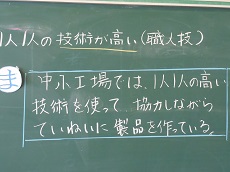 1人1人の技術が高い(職人技)
ま
中小工場では、1人1人の高い
技術を使って、協力しながら
ていねいに製品を作っている。